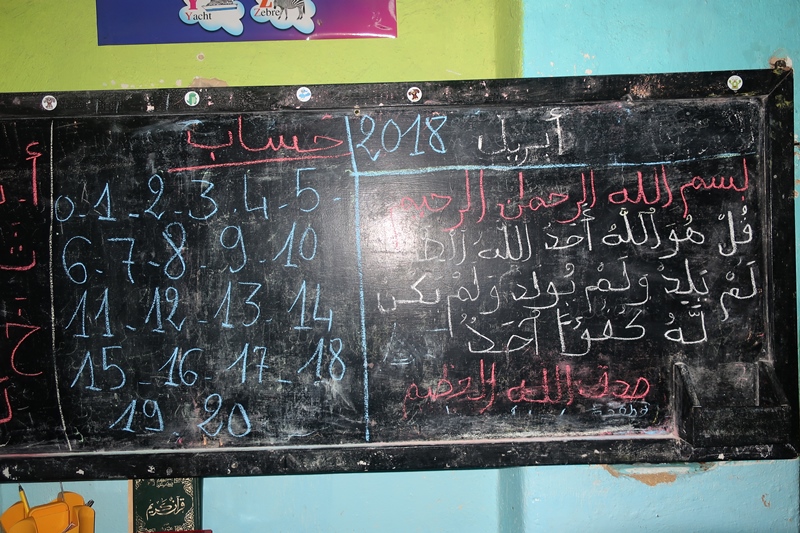 Yacht Zebre
أبريل 2018
بسم الله الرحمان الرحيم
قُلْ هُوَ اللَّهُ أَحَدٌ اللَّهُ
لَمْ يَلِدْ وَلَمْ يُولَدْ وَلَمْ يَكُنْ
لَّهُ كُفُؤًا أَحَدٌ
صدق الله العظيم
حساب
0-1-2-3-4-5-
6-7-8-9-10
11-12-13-14
15-16-17-18
19-20
قرآن كريم